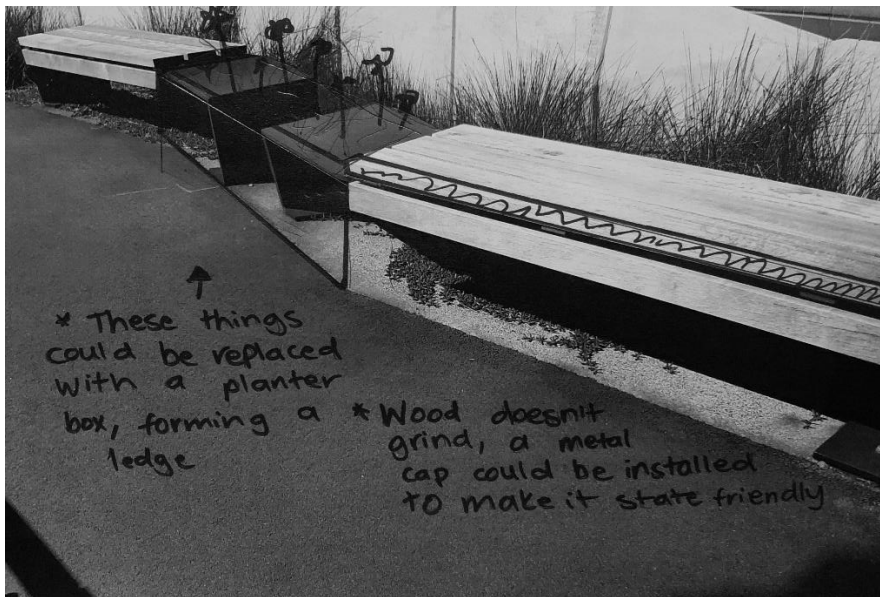 * These things
could be replaced
with a planter
box, forming a
ledge
* Wood doesn't
grind, a metal
cap could be installed
to make it state friendly